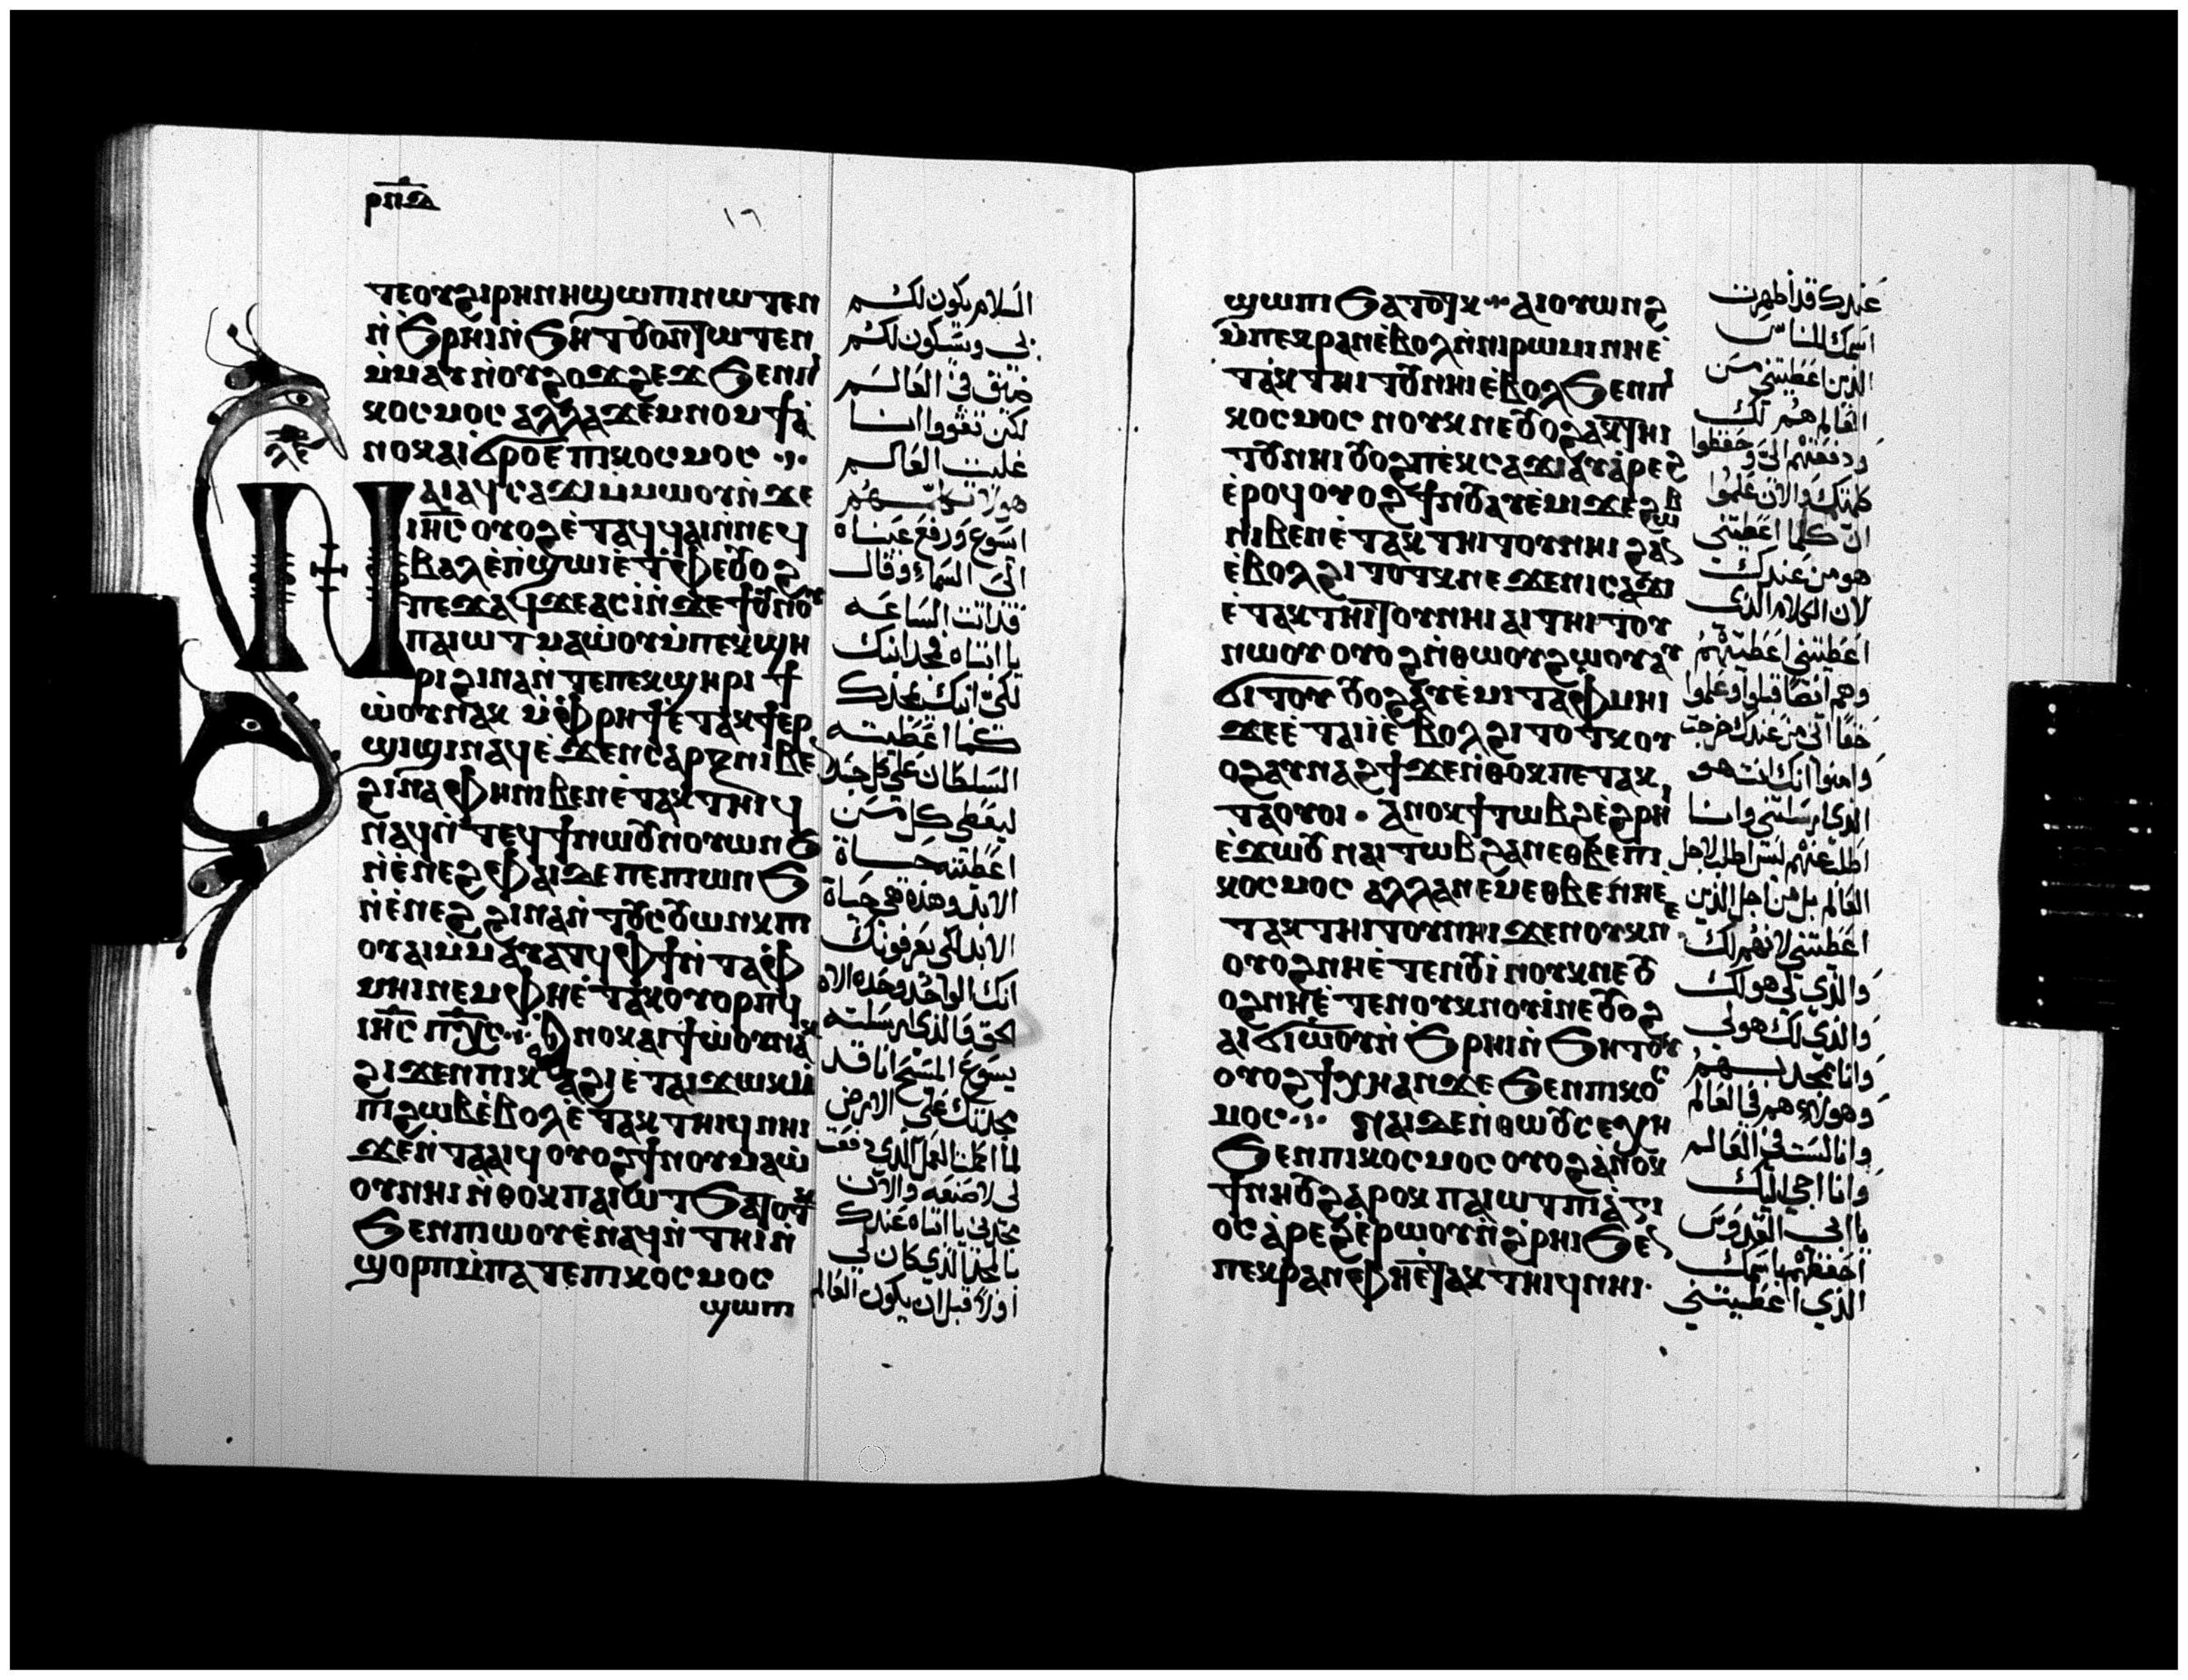 ⲣⲡⲇ
١٦
ⲧⲉⲟⲩϩⲓⲣⲏⲛⲏϣⲱⲡⲓⲛⲱⲧⲉⲛ
ⲛ̀ϧⲣⲏⲓⲛ̀ϧⲏⲧⲟⲩⲟⲛⲧⲱⲧⲉⲛ
ⲙ̀ⲙⲁⲩⲛ̀ⲟⲩϩⲟϫϩⲉϫϧⲉⲛⲡⲓ
ⲕⲟⲥⲙⲟⲥ ⲁⲗⲗⲁϫⲉⲙⲛⲟⲙϯⲁ̀
ⲛⲟⲕⲁⲓϭⲣⲟⲉⲡⲓⲕⲟⲥⲙⲟⲥ
ⲛⲁⲓⲁϥⲥⲁϫⲓⲙ̀ⲙⲱⲟⲩⲛ̀ϫⲉ
ⲓⲏⲥ ⲟⲩⲟϩⲉ̀ⲧⲁϥϥⲁⲓⲛ̀ⲛⲉϥ
ⲃⲁⲗⲉ̀ⲡ̀ϣⲱⲓⲉ̀ⲧⲫⲉⲟⲩⲟϩ
ⲡⲉϫⲁϥϫⲉⲁⲥⲓ̀ⲛ̀ϫⲉϯⲟⲩⲛⲟⲩ
ⲡⲁⲓⲱⲧ ⲙⲁⲱ̀ⲟⲩⲙ̀ⲡⲉⲕϣⲏ
ⲣⲓ ϩⲓⲛⲁⲛ̀ⲧⲉⲡⲉⲕϣⲏⲣⲓ ϯ
ⲱ̀ⲟⲩⲛⲁⲕ ⲙ̀ⲫⲣⲏϯⲉ̀ⲧⲁⲕϯⲉⲣ
ϣⲓϣⲓⲛⲁϥⲉ̀ϫⲉⲛⲥⲁⲣⲝⲛⲓⲃⲉ
ϩⲓⲛⲁⲫⲏⲛⲓⲃⲉⲛⲉ̀ⲧⲁⲕⲧⲏⲓϥ
ⲛⲁϥⲛ̀ⲧⲉϥϯⲛⲱⲟⲩⲛⲟⲩⲱⲛϧ
ⲛ̀ⲉ̀ⲛⲉϩ ⲫⲁⲓϫⲉⲡⲉⲡⲓⲱⲛϧ
ⲛ̀ⲉ̀ⲛⲉϩ ϩⲓⲛⲁⲛ̀ⲧⲟⲩⲥⲟⲩⲱⲛⲕⲡⲓ
ⲟⲩⲁⲓⲙ̀ⲙⲁⲩⲁⲧϥⲫϯⲛ̀ⲧⲁⲫ
ⲙⲏⲓⲛⲉⲙⲫⲏⲉ̀ⲧⲁⲕⲟⲩⲟⲣⲡϥ
ⲓⲏⲥ ⲡⲭⲥ ⲁⲛⲟⲕⲁⲓϯⲱ̀ⲟⲩⲛⲁⲕ
ϩⲓϫⲉⲛⲡⲓⲕⲁϩⲓⲉ̀ⲧⲁⲓϫⲱⲕⲙ̀
ⲡⲓϩⲱⲃⲉ̀ⲃⲟⲗⲉ̀ⲧⲁⲕⲧⲏⲓϥⲛⲏⲓ
ϫⲉⲛ̀ⲧⲁⲁⲓϥⲟⲩⲟϩϯⲛⲟⲩⲙⲁⲱ̀
ⲟⲩⲛⲏⲓ ⲛ̀ⲑⲟⲕⲡⲁⲓⲱⲧϧⲁⲧⲟⲧⲕ
ϧⲉⲛⲡⲓⲱⲟⲩⲉ̀ⲛⲁϥⲛ̀ⲧⲏⲓⲛ̀
ϣⲟⲣⲡⲙ̀ⲡⲁⲧⲉⲡⲓⲕⲟⲥⲙⲟⲥ
ϣⲱⲡⲓ
السلام يكون لكم
بي وسيكون لكم
ضيق في العالم
لكن تقووا انا
غلبت العالم
هولا تكلم بهم
ايسوع ورفع عيناه
الى السماء وقال
قد اتت الساعه
يا ابتاه مجد ابنك
لكي ابنك يمجدك
كما اعطيته
السلطان على كل جسد
ليعطى كل من
اعطيته حياة
الابد وهذه هي حياة
الابد لكي يعرفونك
انك الواحد وحده الاه
الحق والذي ارسلته
يسوع المسيح انا قد
مجدتك على الارض
لما اكملت العمل الذي دفعت
لي لاصنعه والان
مجدني يا ابتاه عندك
بالمجد الذي كان لي
اولا قبل ان يكون العالم
ϣⲱⲡⲓϧⲁⲧⲟⲧⲕ ⲁⲓⲟⲩⲱⲛϩ
ⲙ̀ⲡⲉⲕⲣⲁⲛⲉ̀ⲃⲟⲗⲛ̀ⲛⲓⲣⲱⲙⲓⲛⲏⲉ̀
ⲧⲁⲕⲧⲏⲓⲧⲟⲩⲛⲏⲓⲉ̀ⲃⲟⲗϧⲉⲛⲡⲓ
ⲕⲟⲥⲙⲟⲥ ⲛⲟⲩⲕⲛⲉⲟⲩⲟϩⲁⲕⲧⲏⲓ
ⲧⲟⲩⲛⲏⲓⲟⲩⲟϩⲡⲉⲕⲥⲁϫⲓⲁⲩⲁ̀ⲣⲉϩ
ⲉ̀ⲣⲟϥⲟⲩⲟϩϯⲛⲟⲩⲁⲩⲉ̀ⲙⲓϫⲉϩⲱⲃ
ⲛⲓⲃⲉⲛⲉ̀ⲧⲁⲕⲧⲏⲓⲧⲟⲩⲛⲏⲓϩⲁⲛ
ⲉ̀ⲃⲟⲗϩⲓⲧⲟⲧⲕⲛⲉ ϫⲉⲛⲓⲥⲁϫⲓ
ⲉ̀ⲧⲁⲕⲧⲏⲓⲧⲟⲩⲛⲏⲓ ⲁⲓⲧⲏⲓⲧⲟⲩ
ⲛⲱⲟⲩ ⲟⲩⲟϩⲛ̀ⲑⲱⲟⲩϩⲱⲟⲩⲁⲩ
ϭⲓⲧⲟⲩ ⲟⲩⲟϩⲁⲩⲉ̀ⲙⲓⲧⲁⲫⲙⲏⲓ
ϫⲉⲉ̀ⲧⲁⲓⲓ̀ⲉ̀ⲃⲟⲗϩⲓⲧⲟⲧⲕⲟⲩ
ⲟϩⲁⲩⲛⲁϩϯϫⲉⲛ̀ⲑⲟⲕⲡⲉⲧⲁⲕ
ⲧⲁⲟⲩⲟⲓ ⲁⲛⲟⲕϯⲧⲱⲃϩⲉ̀ϩⲣⲏⲓ
ⲉ̀ϫⲱⲟⲩ ⲛⲁⲓⲧⲱⲃϩⲁⲛⲉⲑⲃⲉⲡⲓ
ⲕⲟⲥⲙⲟⲥ ⲁⲗⲗⲁⲛⲉⲙⲉⲑⲃⲉⲛⲏⲉ̀
ⲧⲁⲕⲧⲏⲓⲧⲟⲩⲛⲏⲓϫⲉⲛⲟⲩⲕⲛⲉ
ⲟⲩⲟϩⲛⲏⲉ̀ⲧⲉⲛⲟⲩⲓ̀ ⲛⲟⲩⲕⲛⲉⲟⲩ
ⲟϩⲛⲏⲉ̀ⲧⲉⲛⲟⲩⲕⲛⲟⲩⲓ̀ⲛⲉⲟⲩⲟϩ
ⲁⲓϭⲓⲱ̀ⲟⲩⲛ̀ϧⲣⲏⲓⲛ̀ϧⲏⲧⲟⲩ
ⲟⲩⲟϩϯⲭⲏⲁⲛϫⲉϧⲉⲛⲡⲓⲕⲟⲥ
ⲙⲟⲥ ⲛⲁⲓϫⲉⲛ̀ⲑⲱⲟⲩⲥⲉⲭⲏ
ϧⲉⲛⲡⲓⲕⲟⲥⲙⲟⲥ ⲟⲩⲟϩⲁ̀ⲛⲟⲕ
ϯⲛⲏⲟⲩϩⲁⲣⲟⲕ ⲡⲁⲓⲱⲧⲡⲓⲁ̀ⲅⲓ
ⲟⲥⲁ̀ⲣⲉϩⲉ̀ⲣⲱⲟⲩⲛ̀ϩⲣⲏⲓϧⲉⲛ
ⲡⲉⲕⲣⲁⲛⲫⲏⲉ̀ⲧⲁⲕⲧⲏⲓϥⲛⲏⲓ
عندك قد اظهرت
اسمك للناس
الذين اعطيتني من
العالم هم لك
ودفعتهم الى وحفظوا
كلمتك والان علموا
ان كلما اعطيتني
هو من عندك
لان الكلام الذي
اعطيتني اعطيتهم
وهم ايضا قبلوا وعلموا
حقا اني من عندك خرجت
وامنوا انك انت هو
الذي ارسلتني وانا
اطلب عنهم ليس اطلب لاجل
العالم بل من اجل الذين
اعطيتني لانهم لك
والذي لي هو لك
والذي لك هو لي
وانا ممجد بهم
وهولاء هم في العالم
وانا لست في العالم
وانا اجي اليك
يا ابي القدوس
احفظهم باسمك
الذي اعطيتني